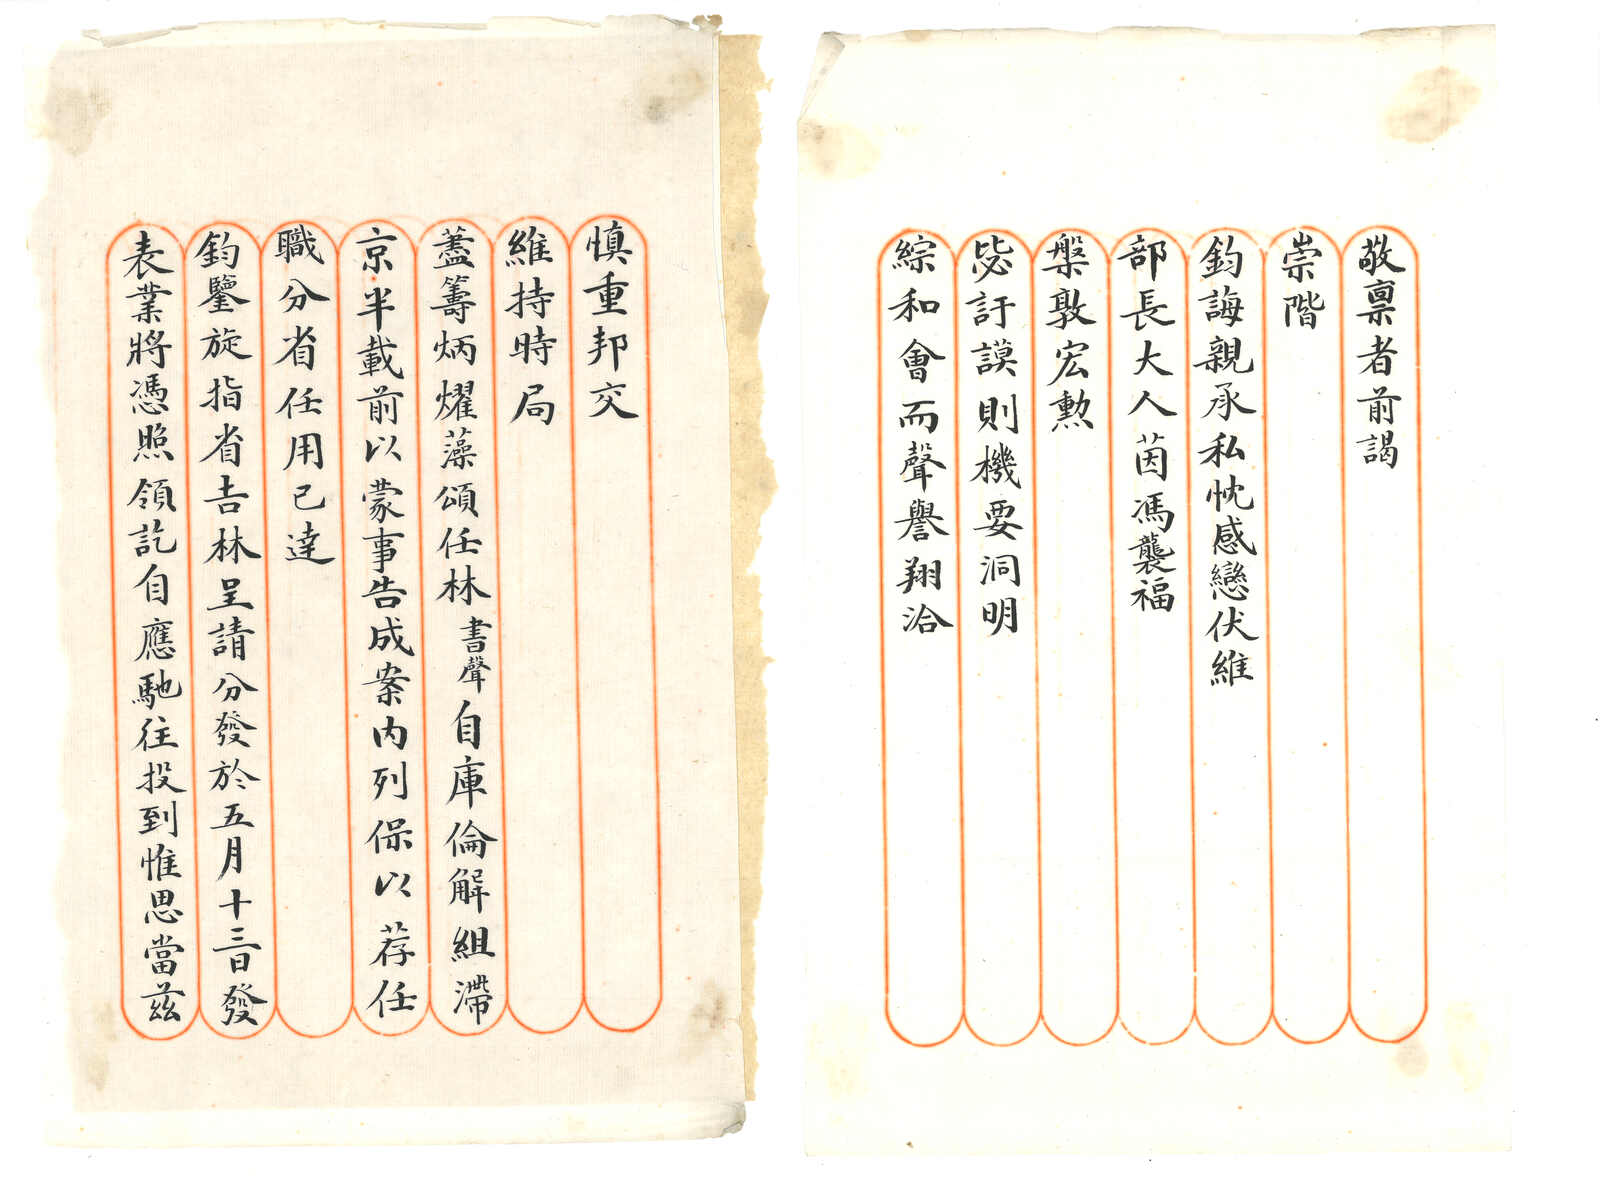 敬禀者前謁
崇階
鈞誨親承私忱感戀伏維
部長大人茵馮襲福
槃敦宏勲
毖訏謨則機要洞明
綜和會而聲譽翔洽
慎重邦交
維持時局
藎籌炳燿藻頌任林書聲自庫倫解組滯
京半載前以蒙事告成案内列保以荐任
職分省任用已達
鈞鑒旋指省吉林呈請分發於五月十三日發
表業將憑照領訖自應馳往投到惟思當兹